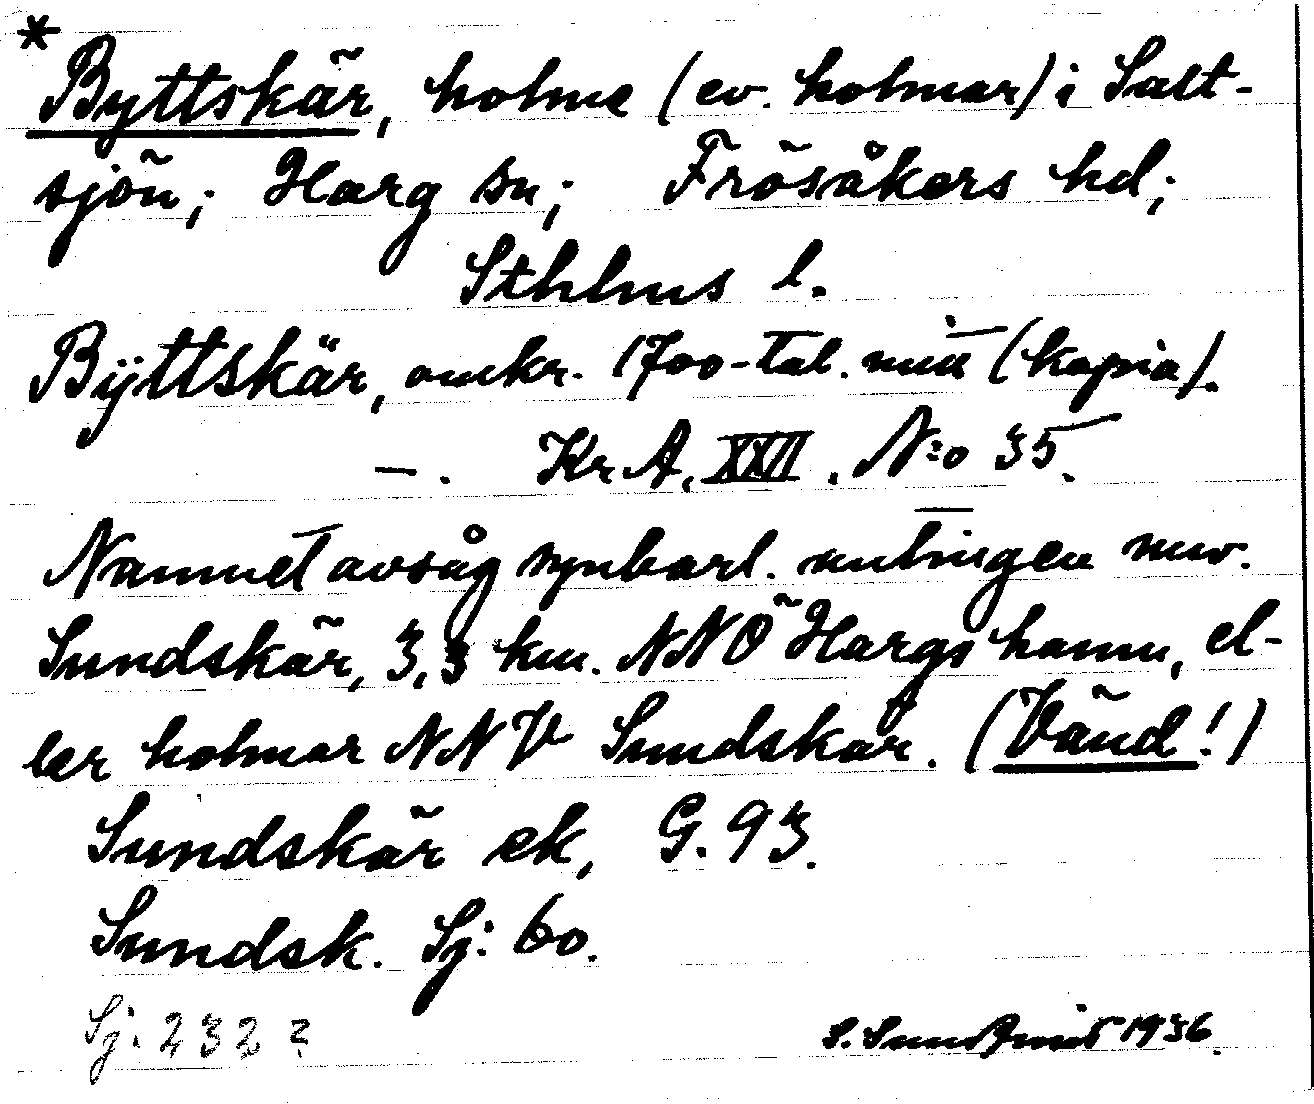 * Byttskär, holme (ev. holmar) i Salt-
sjön; Harg sn; Frösåkers hd;
Sthlms l.
Bÿttskär, omkr. 1700-tal. mitt (kopia).
—. Kr A, XXII, N:o 35.
Namnet avsåg synbarl. antingen nuv.
Sundskär, 3,3 km. NNÖ Hargshamn, el-
ler holmar NNV Sundskär. (Vänd!)
Sundskär ek, G. 93.
Sundsk. Sj: 60.
Sj. 232?
1936